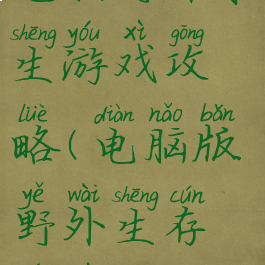 shēng yóu xì gōng
生游戏攻
lüè diàn nǎo bǎn
略(电脑版
yě wài shēng cún
野外生存